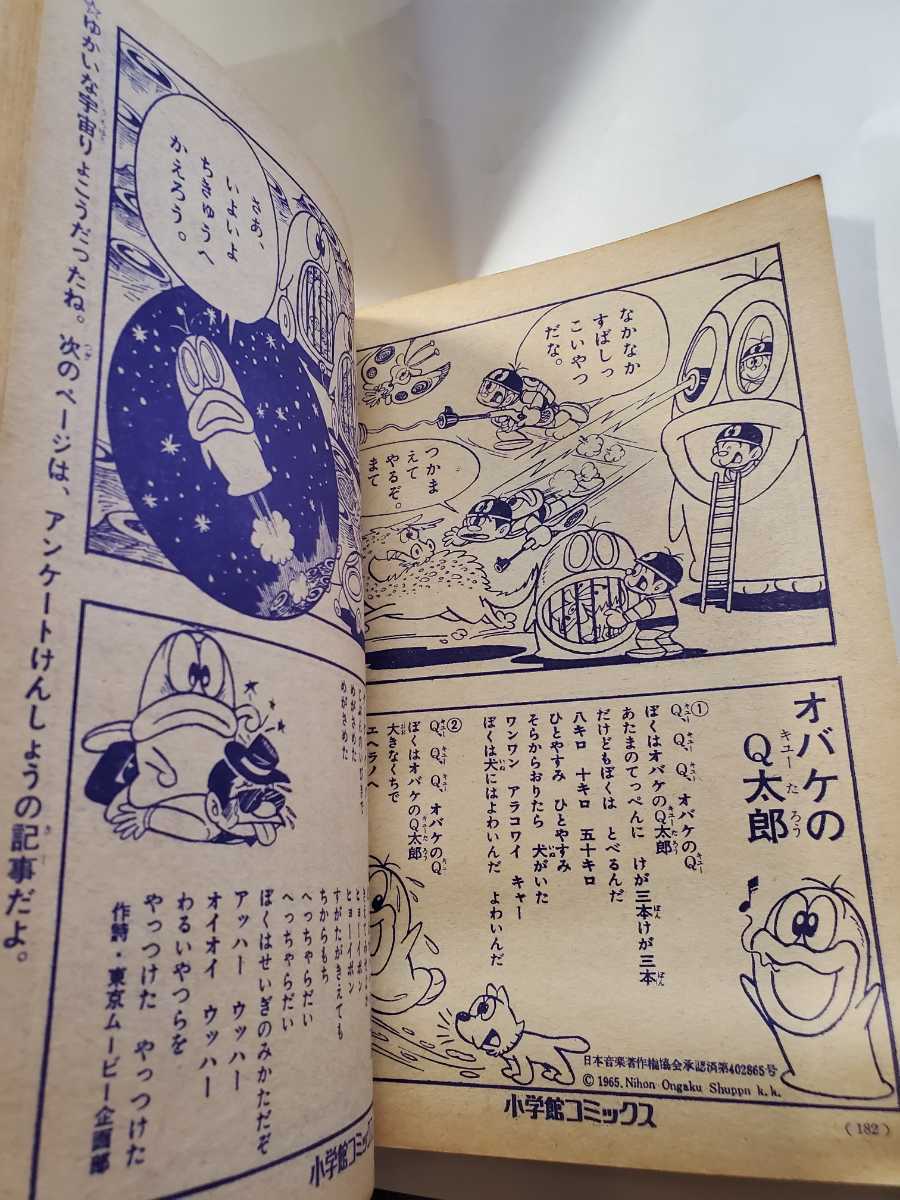 なかなか
すばしっ
こいやつ
だな。
つかま
えて
やるぞ。
まて
オバケの
Q太郎
キュー たろう
①
Q Q Q オバケのQ
ぼくはオバケのQ太郎
あたまのてっぺんに けが三本けが三本
だけどもぼくは とべるんだ
八キロ 十キロ 五十キロ
ひとやすみ ひとやすみ
そらからおりたら 犬がいた
ワンワン アラコワイ キャー
ぼくは犬にはよわいんだ よわいんだ
②
Q Q Q オバケのQ
ぼくはオバケのQ太郎
大きなくちで
エヘラノヘ
日本音楽著作権協会承認済第402865号
© 1965. Nihon Ongaku Shuppn k. k.
小学館コミックス
(182)
さあ、
いよいよ
ちきゅうへ
かえろう。
めがさめた
めがさめた
ヒョーイポン
ヒョーイポン
すがたがきえても
ちからもち
へっちゃらだい
へっちゃらだい
ぼくはせいぎのみかただぞ
アッハー ウッハー
オイオイ ウッハー
わるいやつらを
やっつけた やっつけた
作詩・東京ムービー企画部
小学館コミックス
☆ゆかいな宇宙りょこうだったね。次のページは、アンケートけんしょうの記事だよ。